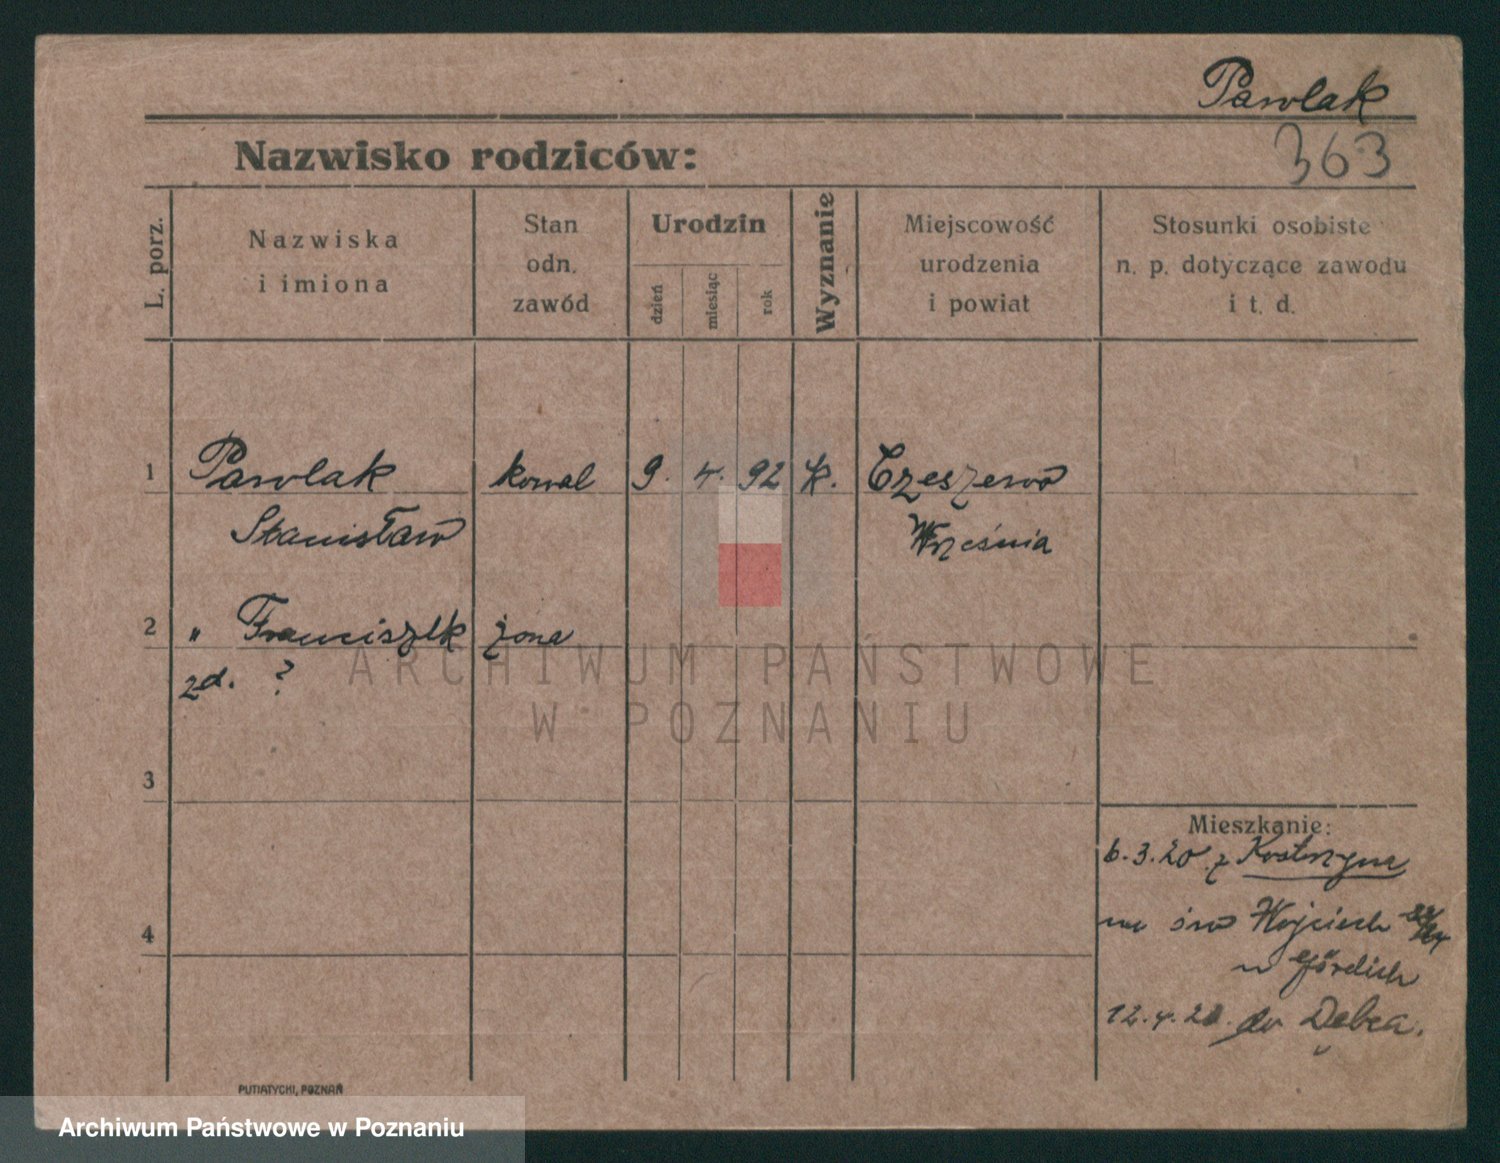 Pawlak
363
Nazwisko rodziców:
L. porz.
Nazwiska
i imiona
Stan
odn.
zawód
Urodzin
dzień
miesiąc
rok
Wyznanie
Miejscowość
urodzenia
i powiat
Stosunki osobiste
n. p. dotyczące zawodu
i t. d.
1 Pawlak kowal 9. 4. 92 k. Czeszewo
Stanisław Września
2 " Franciszk żona
zd. ?
ARCHIWUM PAŃSTWOWE
W POZNANIU
3
Mieszkanie:
6.3.20 z Kostrzyna
na św Wojciech
4
u
12.4.21. do Dębca.
PUTIATYCKI, POZNAŃ
Archiwum Państwowe w Poznaniu